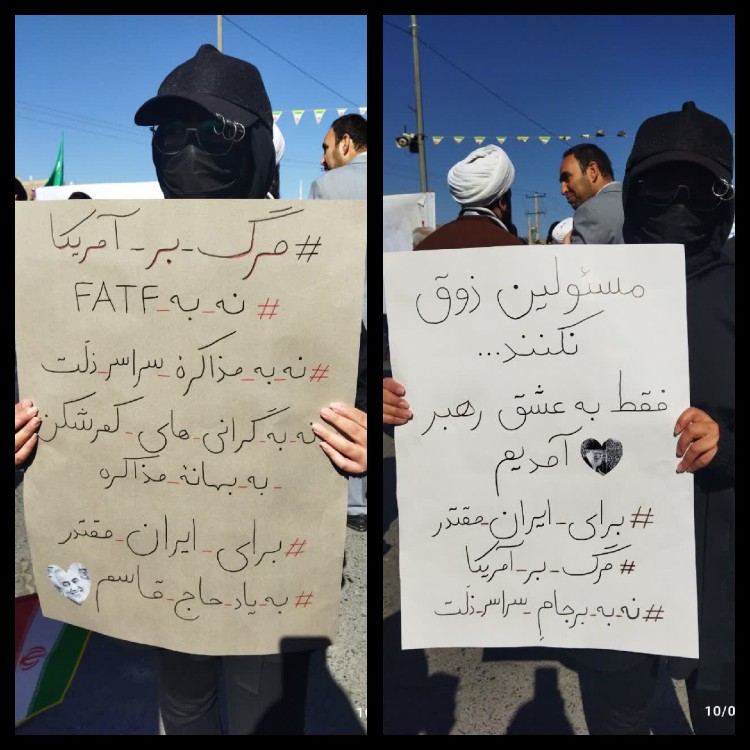 #مرگ_بر_آمریکا
#نه_به_FATF
#نه_به_مذاکرهٔ_سراسر_ذلّت
نه_به_گرانی_های_کمرشکن
_به_بهانهٔ_مذاکره
#برای_ایران_مقتدر
#به_یاد_حاج_قاسم
مسئولین ذوق
نکنند...
فقط به عشق رهبر
آمدیم
#برای_ایران_مقتدر
#مرگ_بر_آمریکا
#نه_به_برجامِ_سراسر_ذلّت
10/0